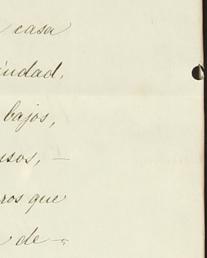 casa
iudad,
bajos,
usos, —
ros que
de —